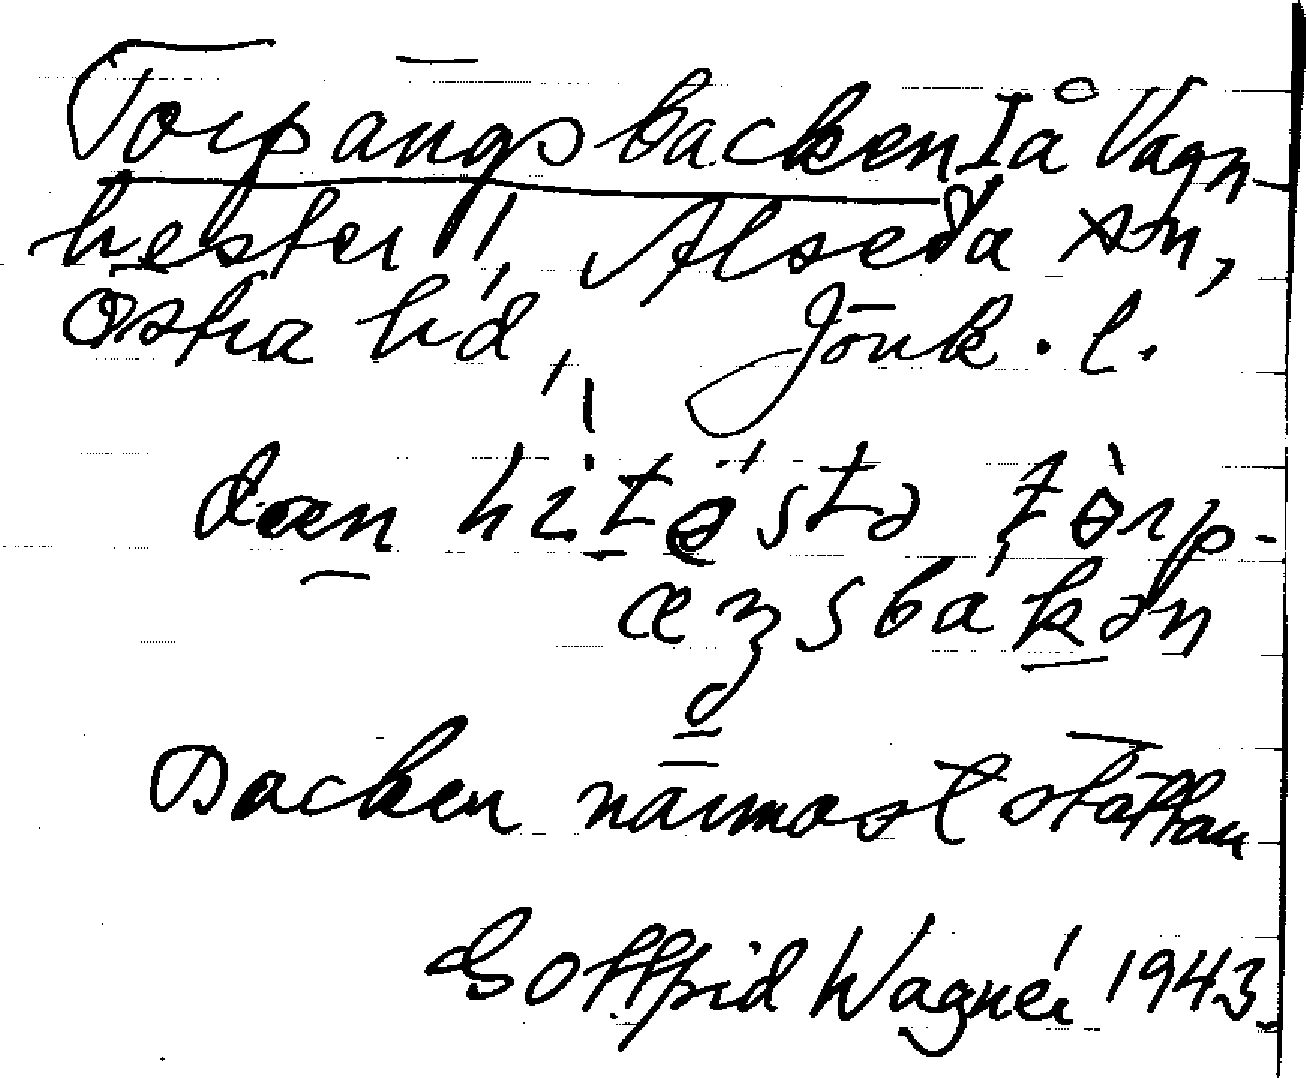 Torpängsbacken I å Vagn-
hester, Alseda sn,
Östra hd, Jönk. l.
dæn hitəsta tòrp-
æŋsbákən
Backen närmast stättan
Gottfrid Wagnér 1943.